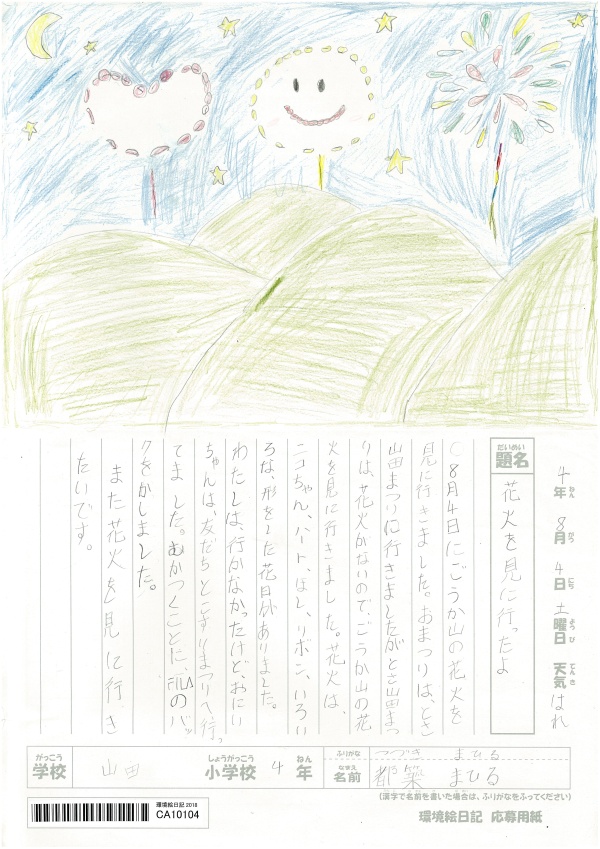 4年 8月 4日 土曜日 天気 はれ
ねん がつ にち よう び てんき
だいめい
題名
花火を見に行ったよ
○8月4日にごうか山の花火を
見に行きました。おまつりは、とき
山田まつりに行きましたがとき山田まつ
りは、花火がないので、ごうか山の花
火を見に行きました。花火は、
ニコちゃん、ハート、ほし、リボン、いろい
ろな、形をした花火がありました。
わたしは、行かなかったけど、おにい
ちゃんは、友だちとこすりまつりへ行っ
てました。むかつくことに、FILAのバッ
クをかしました。
また花火を見に行き
たいです。
がっこう
学校
山田
しょうがっこう
小学校
4
ねん
年
ふりがな
つづき まひる
なまえ
名前
都築 まひる
(漢字で名前を書いた場合は、ふりがなをふってください)
環境絵日記 2018
CA10104
環境絵日記 応募用紙